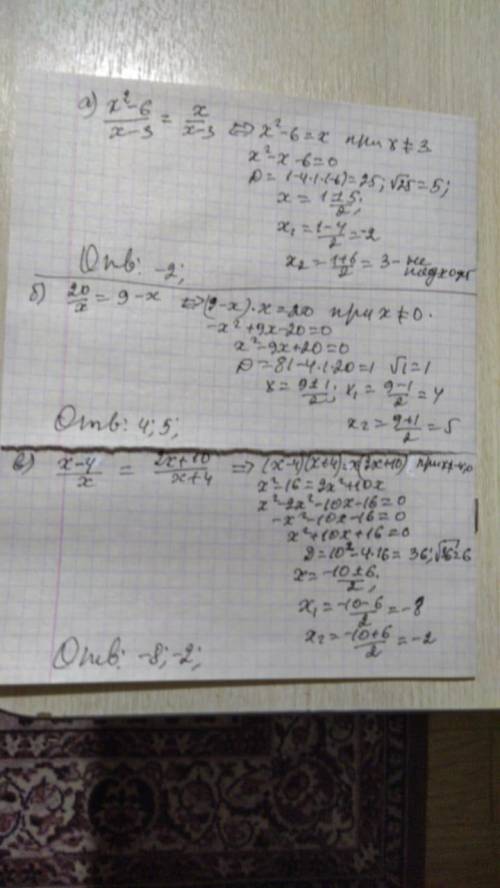 а) (x²-6)/(x-3) = x/(x-3) ⇔ x²-6=x при x≠3
x²-x-6=0
D=1-4·1·(-6)=25; √25=5;
x=(1±5)/2;
x₁=(1-4)/2=-2
x₂=(1+6)/2=3-не подходит
Отв: -2;
б) 20/x=9-x ⇔ (9-x)·x=20 при x≠0.
-x²+9x-20=0
x²-9x+20=0
D=81-4·1·20=1 √1=1
x=(9±1)/2; x₁=(9-1)/2=4
x₂=(9+1)/2=5
Отв: 4; 5;
в) (x-4)/x = (2x+10)/(x+4) ⇒ (x-4)(x+4)=x(2x+10) при x≠-4;0
x²-16=2x²+10x
x²-2x²-10x-16=0
-x²-10x-16=0
x²+10x+16=0
D=10²-4·16=36; √36=6
x=(-10±6)/2;
x₁=(-10-6)/2=-8
x₂=(-10+6)/2=-2
Отв: -8; -2;